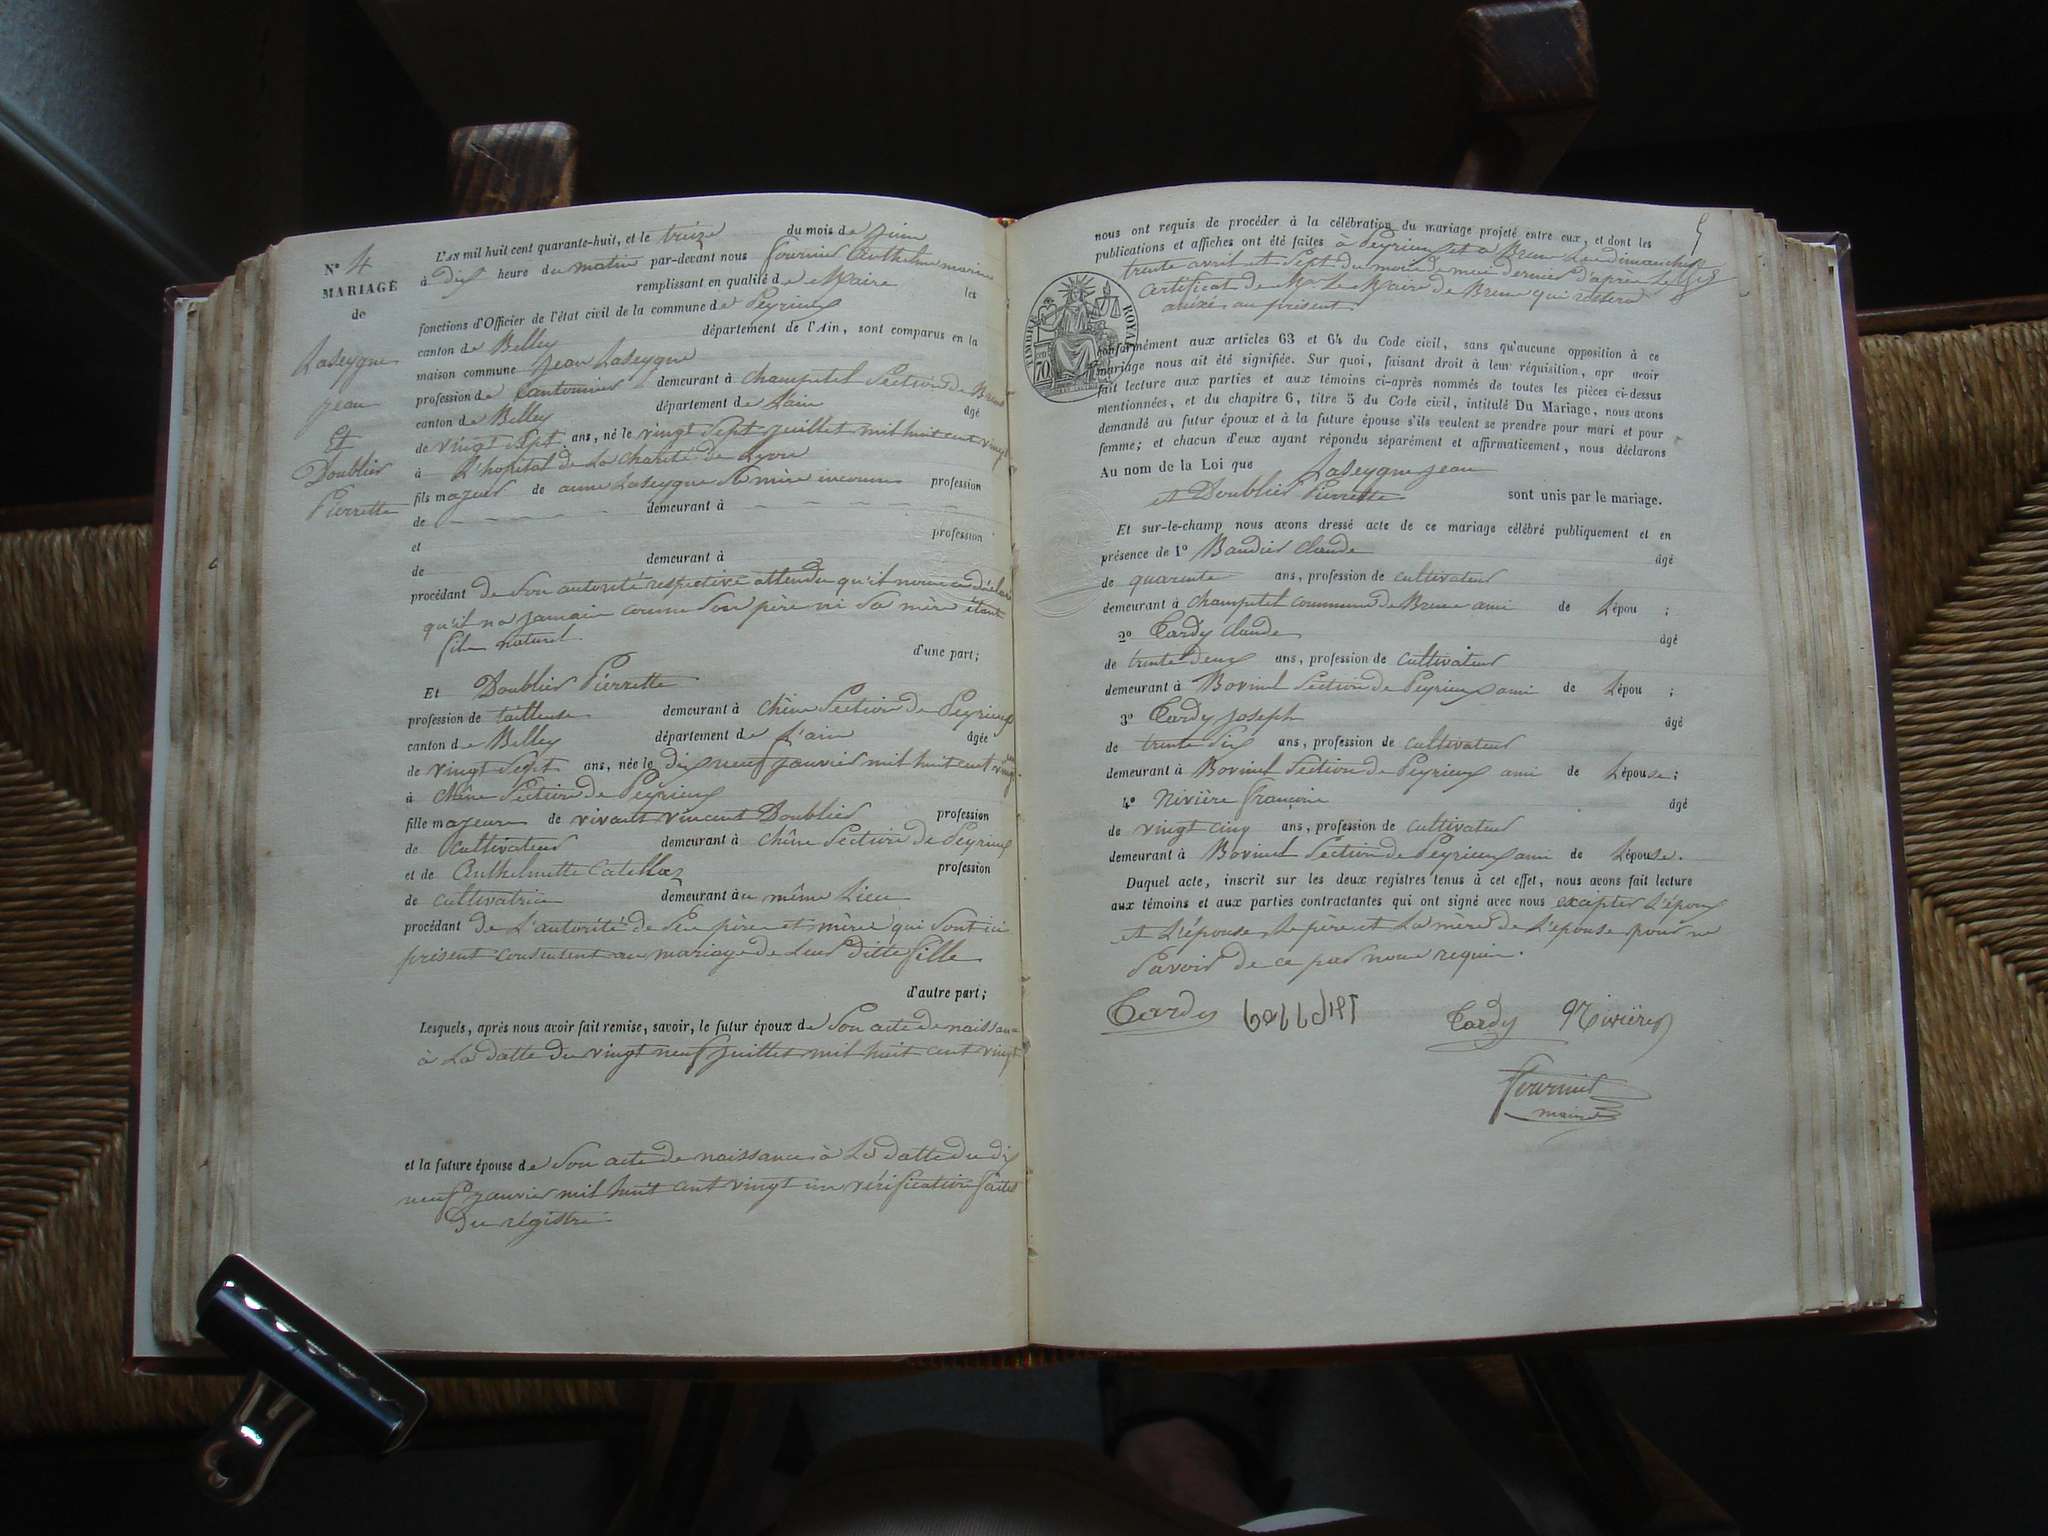 N° 4
MARIAGE
de
Laseygne
Jean
Et
Doublier
Pierrette
L'AN mil huit cent quarante-huit, et le treize du mois de Juin
à dix heure du matin par-devant nous fournier Anthelme marin
remplissant en qualité de Maire les
fonctions d'Officier de l'état civil de la commune de Peyrieux
canton de Belley département de l'Ain, sont comparus en la
maison commune Jean Laseygne
profession de Cantonnier demeurant à champtel Section de Brens
canton de Belley département de L'ain âgé
de vingt Sept ans, né le vingt Sept Juillet mil huit cent vingt
à L'hopital de La charité de Lyon
fils majeur de anne Laseygne Sa mère inconnue profession
de demeurant à
et profession
de demeurant à
procédant de Son autorité respective attendu qu'il nous a déclaré
qu'il na jamais connu Son père ni Sa mère étant
fils naturel
d'une part;
Et Doublier Pierrette
profession de tailleuse demeurant à chêne Section de Peyrieux
canton de Belley département de L'ain âgée
de vingt Sept ans, née le dix neuf Janvier mil huit cent vingt un
à Chêne Section de Peyrieux
fille majeure de vivants vincent Doublier profession
de Cultivateur demeurant à chêne Section de Peyrieux
et de Anthelmette Catelloz profession
de cultivatrice demeurant au même Lieu
procédant de L'autorité de Ses père et mère qui Sont ici
présent consentent au mariage de Leur ditte fille
d'autre part;
Lesquels, après nous avoir fait remise, savoir, le futur époux de Son acte de naissance
à La datte du vingt neuf Juillet mil huit cent vingt
et la future épouse de Son acte de naissance à La datte du dix
neuf Janvier mil huit cent vingt un vérification faite
du régistre
5
nous ont requis de procéder à la célébration du mariage projeté entre eux, et dont les
publications et affiches ont été faites à Peyrieux et a Brens Les dimanches
trente avril et Sept du mois de mai dernier d'après Le
Certificat de Mr Le Maire de Brens qui restera
anixé au présent
TIMBRE ROYAL
70
conformément aux articles 63 et 64 du Code civil, sans qu'aucune opposition à ce
mariage nous ait été signifiée. Sur quoi, faisant droit à leur réquisition, apr avoir
fait lecture aux parties et aux témoins ci-après nommés de toutes les pièces ci-dessus
mentionnées, et du chapitre 6, titre 5 du Code civil, intitulé Du Mariage, nous avons
demandé au futur époux et à la future épouse s'ils veulent se prendre pour mari et pour
femme; et chacun d'eux ayant répondu séparément et affirmaticement, nous déclarons
Au nom de la Loi que Laseygne Jean
et Doublier Pierrette sont unis par le mariage.
Et sur-le-champ nous avons dressé acte de ce mariage célébré publiquement et en
présence de 1° Baudier Claude âgé
de quarante ans, profession de cultivateur
demeurant à champtel commune de Brens ami de Lépou ;
2° Tardy Claude âgé
de trente deux ans, profession de cultivateur
demeurant à Bovinel Section de Peyrieux ami de Lépou ;
3° Tardy Joseph âgé
de trente Six ans, profession de cultivateur
demeurant à Bovinel Section de Peyrieux ami de Lépouse;
4° Nivière françois âgé
de vingt cinq ans, profession de cultivateur
demeurant à Bovinel Section de Peyrieux ami de Lépouse.
Duquel acte, inscrit sur les deux registres tenus à cet effet, nous avons fait lecture
aux témoins et aux parties contractantes qui ont signé avec nous excepter L'époux
et L'épouse, Le père et La mère de L'épouse pour ne
Savoir de ce par nous requis.
Tardy Tardy Nivière
fournier
maire